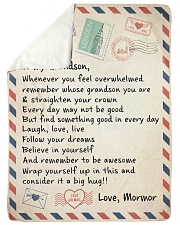 To My Grandson,
Whenever you feel overwhelmed
remember whose grandson you are
& straighten your crown
Every day may not be good
But find something good in every day
Laugh, love, live
Follow your dreams
Believe in yourself
And remember to be awesome
Wrap yourself up in this and
consider it a big hug!!
Love, Mormor